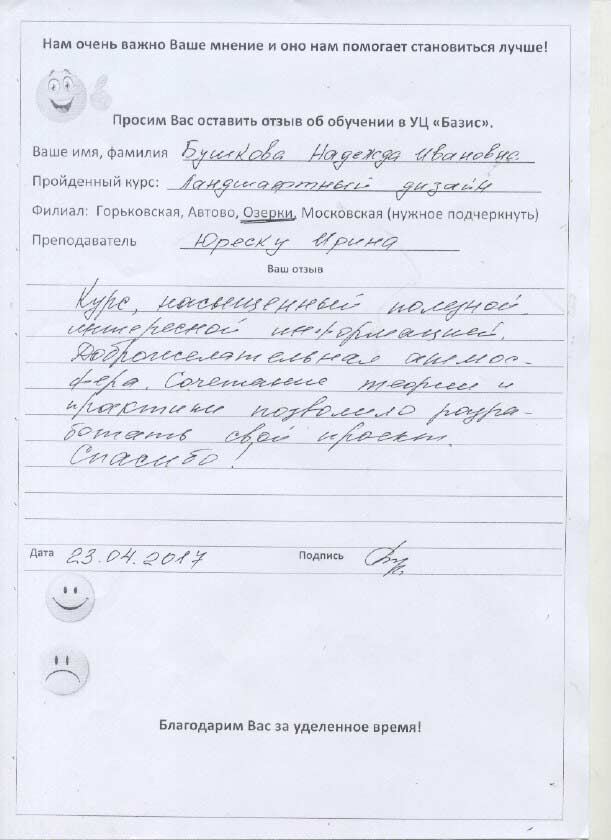 Нам очень важно Ваше мнение и оно нам помогает становиться лучше!
Просим Вас оставить отзыв об обучении в УЦ «Базис».
Ваше имя, фамилия Бушкова Надежда Ивановна
Пройденный курс: Ландшафтный дизайн
Филиал: Горьковская, Автово, Озерки, Московская (нужное подчеркнуть)
Преподаватель Юреску Ирина
Ваш отзыв
Курс, насыщенный полезной
интересной информацией.
Доброжелательная атмос-
фера. Сочетание теории и
практики позволило разра-
ботать свой проект.
Спасибо!
Дата 23.04.2017 Подпись
Благодарим Вас за уделенное время!